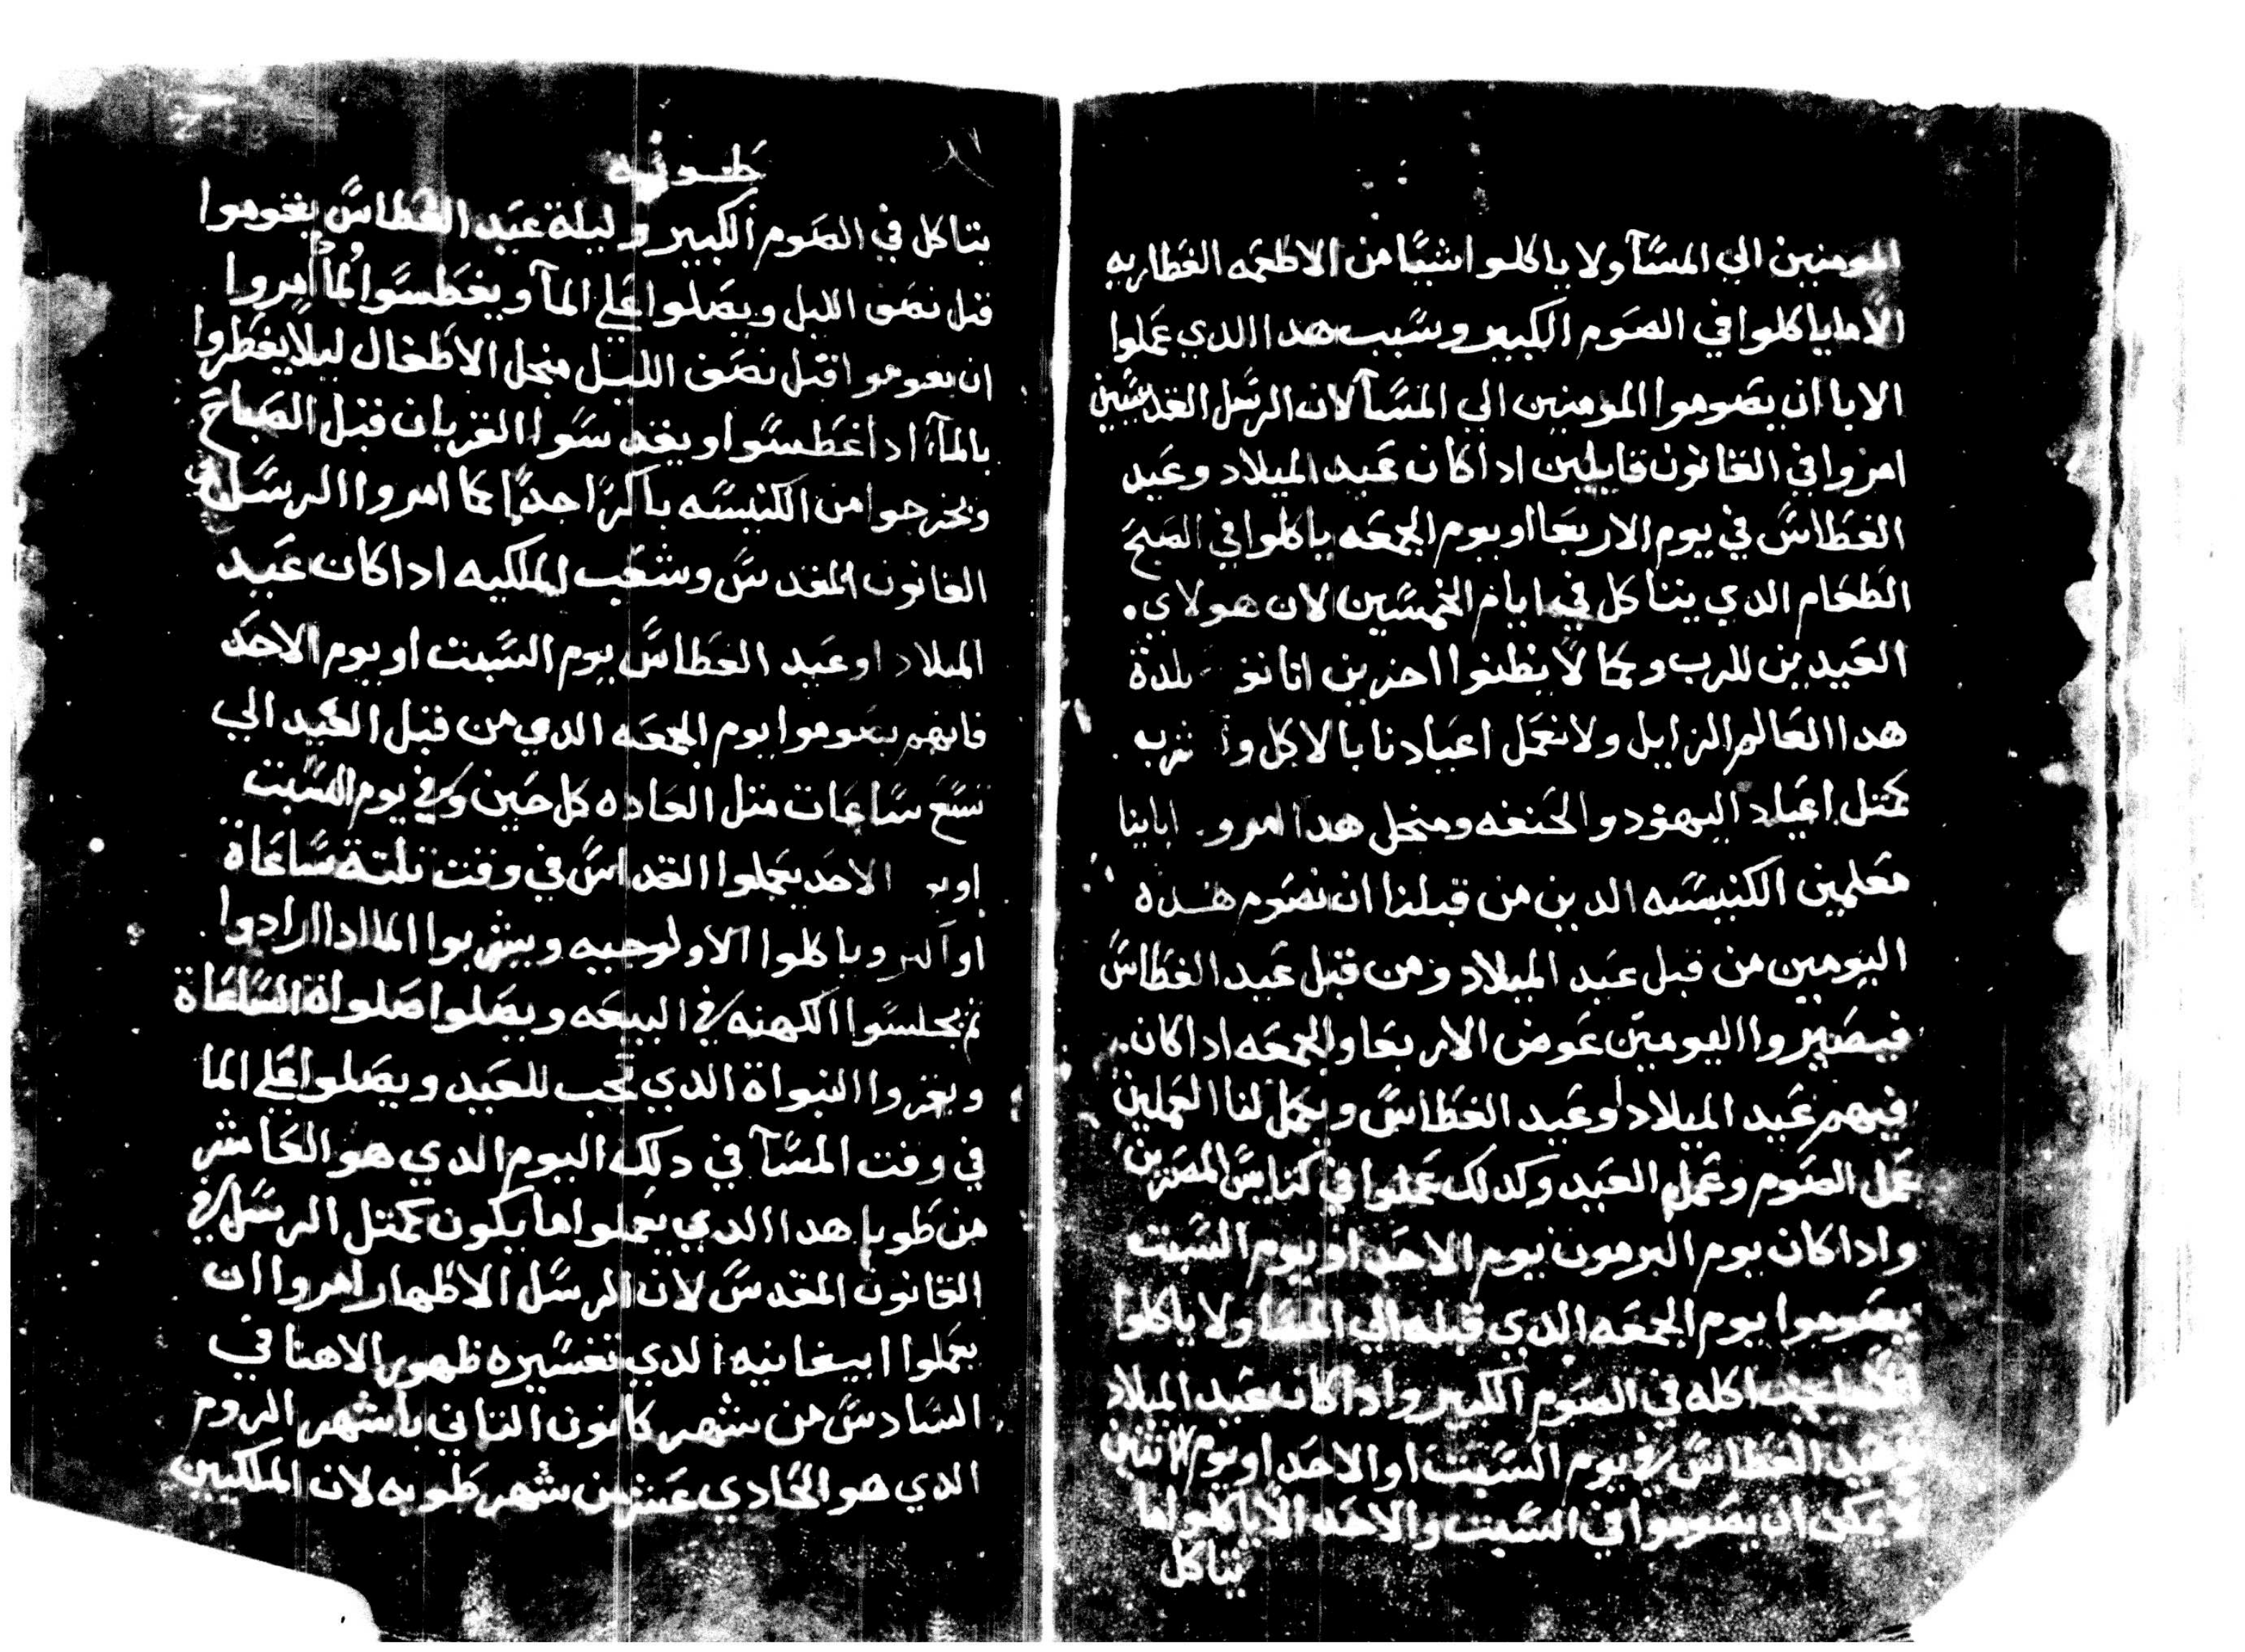 المومنين الي المسآ ولا ياكلوا شيا من الاطعمه الفطاريه
الا ما ياكلوا في الصوم الكبير وسبب هدا الدي عملوا
الابا ان يصوموا المومنين الي المسآ لان الرسل القديسين
امروا في القانون قايلين ادا كان عيد الميلاد وعيد
الغطاس في يوم الاربعا او يوم الجمعه ياكلوا في الصبح
الطعام الدي يتاكل في ايام الخمسين لان هولاي
العيدين للرب وكما لا يظنوا اخرين اننا لدة
هدا العالم الزايل ولا نعمل اعيادنا بالاكل و
كمتل اعياد اليهود والحنفه ومنجل هدا امرو ابابنا
معلمين الكنيسه الدين من قبلنا ان نصوم هده
اليومين من قبل عيد الميلاد ومن قبل عيد الغطاس
فيصيروا اليومين عوض الاربعا والجمعه ادا كان
فيهم عيد الميلاد او عيد الغطاس ويكمل لنا العملين
عمل الصوم وعمل العيد وكدلك عملوا في كنايس المصريين
وادا كان يوم البرمون يوم الاحد او يوم السبت
يصوموا يوم الجمعه الدي قبله الي المسا ولا ياكلوا
يجب اكله في الصوم الكبير وادا كان عيد الميلاد
وعيد الغطاس في يوم السبت او الاحد او يوم الاتنين
لا يمكن ان يصوموا في السبت والاحد الا ياكلوا ما
يتاكل
طوبه
يتاكل في الصوم الكبير وليلة عيد الغطاس يقوموا
قبل نصف الليل ويصلوا علي المآ ويغطسوا وانما امروا
ان يقوموا قبل نصف الليل منجل الاطفال ليلا يفطروا
بالمآ ادا غطسوا ويقدسوا القربان قبل الصباح
ويخرجوا من الكنيسه باكرا جدا كما امروا الرسل في
القانون المقدس وشعب الملكيه ادا كان عيد
الميلاد او عيد الغطاس يوم السبت او يوم الاحد
فانهم يصوموا يوم الجمعه الدي من قبل العيد الي
تسع ساعات متل العاده كل حين وفي يوم السبت
او الاحد يعملوا القداس في وقت تلتة ساعاة
وياكلوا الاولوجيه ويشربوا الما ادا ارادوا
تم يجلسوا الكهنه في البيعه ويصلوا صلواة الساعاة
ويقروا النبواة الدي تجب للعيد ويصلوا علي الما
في وقت المسآ في دلك اليوم الدي هو العاشر
من طوبا هدا الدي يعملوا ما يكون كمتل الرسل في
القانون المقدس لان الرسل الاطهار امروا ان
يعملوا ابيفانيه الدي تفسيره ظهور الاهنا في
السادس من شهر كانون التاني باشهر الروم
الدي هو الحادي عشر من شهر طوبه لان الملكيين